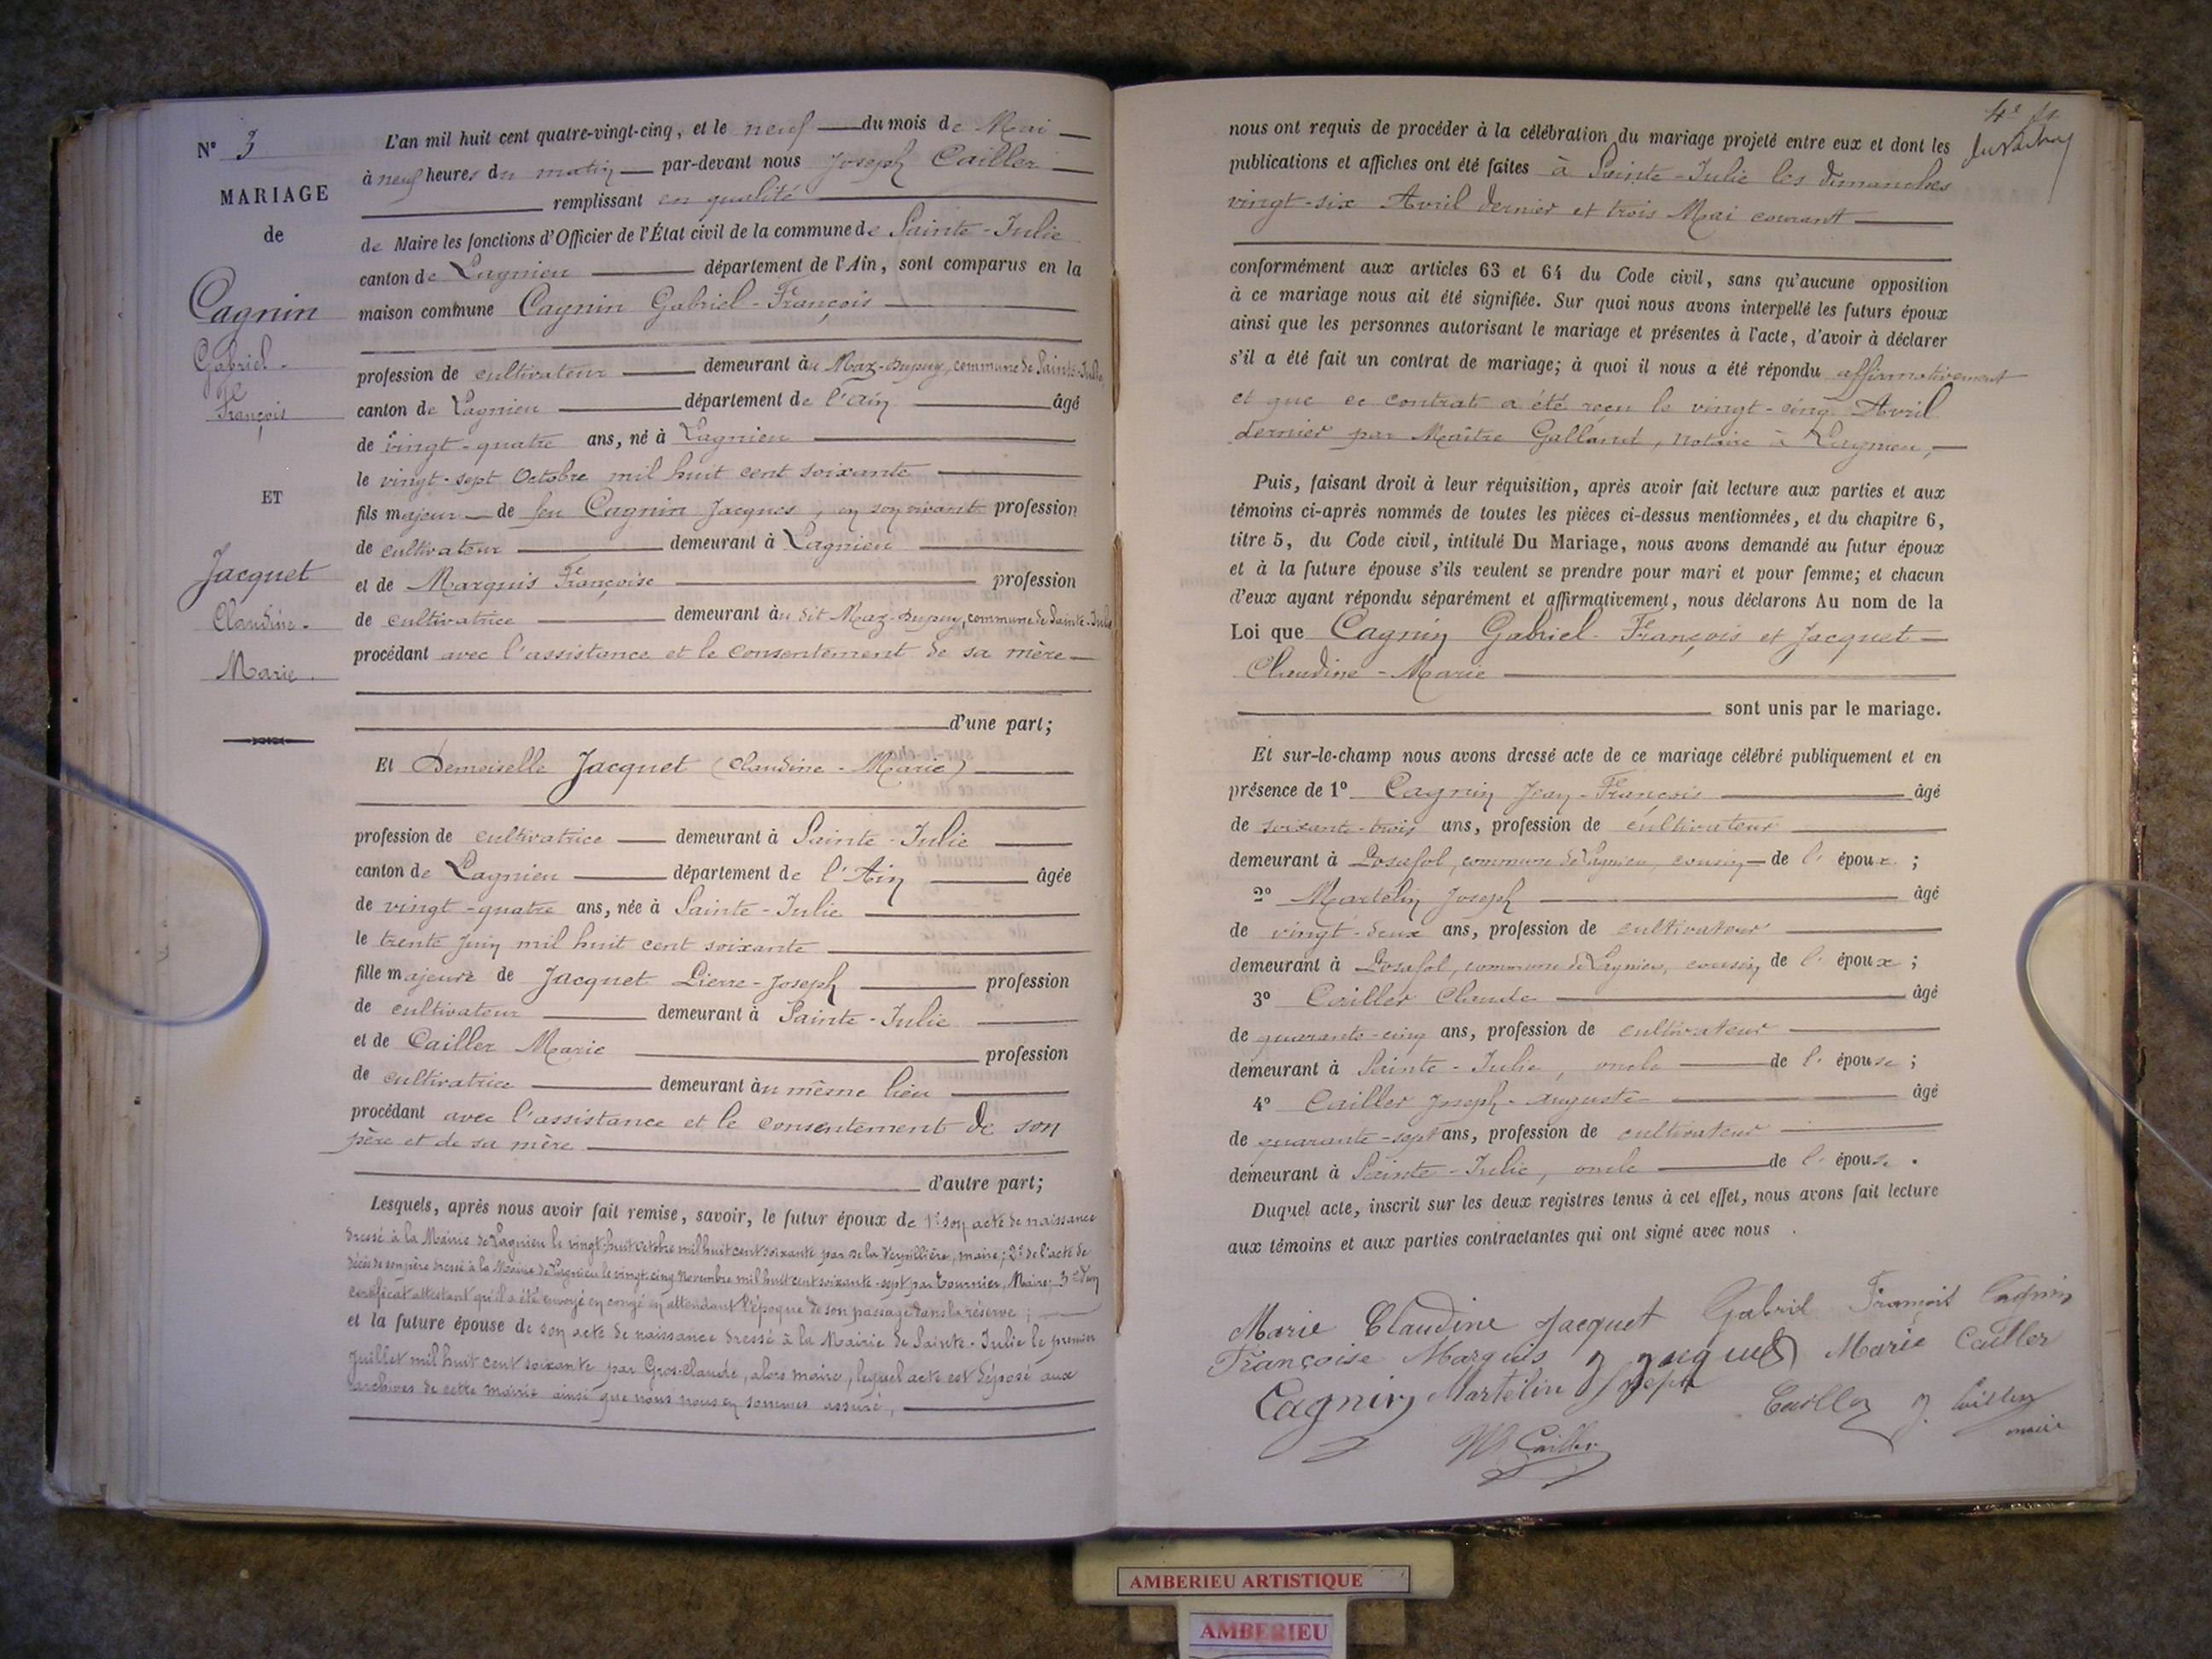 N° 3
MARIAGE
de
Cagnin
Gabriel-
François
ET
Jacquet
Claudine-
Marie.
L'an mil huit cent quatre-vingt-cinq, et le neuf du mois de Mai
à neuf heures du matin par-devant nous Joseph Cailler
remplissant en qualité
de Maire les fonctions d'Officier de l'État civil de la commune de Sainte-Julie
canton de Lagnieu département de l'Ain, sont comparus en la
maison commune Cagnin Gabriel-François
profession de cultivateur demeurant au Maz-Dupuy, commune de Sainte-Julie
canton de Lagnieu département de l'Ain âgé
de vingt-quatre ans, né à Lagnieu
le vingt-sept Octobre mil huit cent soixante
fils majeur de feu Cagnin Jacques, en son vivant profession
de cultivateur demeurant à Lagnieu
et de Marquis Françoise profession
de cultivatrice demeurant au dit Maz-Dupuy, commune de Sainte-Julie
procédant avec l'assistance et le consentement de sa mère
d'une part;
Et Demoiselle Jacquet (Claudine-Marie)
profession de cultivatrice demeurant à Sainte-Julie
canton de Lagnieu département de l'Ain âgée
de vingt-quatre ans, née à Sainte-Julie
le trente Juin mil huit cent soixante
fille majeure de Jacquet Pierre-Joseph profession
de cultivateur demeurant à Sainte-Julie
et de Cailler Marie profession
de cultivatrice demeurant au même lieu
procédant avec l'assistance et le consentement de son
père et de sa mère
d'autre part;
Lesquels, après nous avoir fait remise, savoir, le futur époux de 1° son acte de naissance
dressé à la Mairie de Lagnieu le vingt-huit octobre mil huit cent soixante par de la Verpillière, maire; 2° de l'acte de
décès de son père dressé à la Mairie de Lagnieu le vingt-cinq Novembre mil huit cent soixante-sept par Tournier, Maire; 3° d'un
certificat attestant qu'il a été envoyé en congé en attendant l'époque de son passage dans la réserve;
et la future épouse de son acte de naissance dressé à la Mairie de Sainte-Julie le premier
Juillet mil huit cent soixante par Gros-Claude, alors maire, lequel acte est déposé aux
archives de cette mairie ainsi que nous nous en sommes assuré,
nous ont requis de procéder à la célébration du mariage projeté entre eux et dont les
publications et affiches ont été faites à Sainte-Julie les dimanches
vingt-six Avril dernier et trois Mai courant
conformément aux articles 63 et 64 du Code civil, sans qu'aucune opposition
à ce mariage nous ait été signifiée. Sur quoi nous avons interpellé les futurs époux
ainsi que les personnes autorisant le mariage et présentes à l'acte, d'avoir à déclarer
s'il a été fait un contrat de mariage; à quoi il nous a été répondu affirmativement
et que ce contrat a été reçu le vingt-cinq Avril
dernier par Maître Galland, notaire à Lagnieu,
Puis, faisant droit à leur réquisition, après avoir fait lecture aux parties et aux
témoins ci-après nommés de toutes les pièces ci-dessus mentionnées, et du chapitre 6,
titre 5, du Code civil, intitulé Du Mariage, nous avons demandé au futur époux
et à la future épouse s'ils veulent se prendre pour mari et pour femme; et chacun
d'eux ayant répondu séparément et affirmativement, nous déclarons Au nom de la
Loi que Cagnin Gabriel-François et Jacquet
Claudine-Marie
sont unis par le mariage.
Et sur-le-champ nous avons dressé acte de ce mariage célébré publiquement et en
présence de 1° Cagnin Jean-François âgé
de soixante-trois ans, profession de cultivateur
demeurant à Posafol, commune de Lagnieu, cousin de l'époux;
2° Martelin Joseph âgé
de vingt-deux ans, profession de cultivateur
demeurant à Posafol, commune de Lagnieu, cousin de l'époux;
3° Cailler Claude âgé
de quarante-cinq ans, profession de cultivateur
demeurant à Sainte-Julie, oncle de l'épouse;
4° Cailler Joseph-Auguste âgé
de quarante-sept ans, profession de cultivateur
demeurant à Sainte-Julie, oncle de l'épouse.
Duquel acte, inscrit sur les deux registres tenus à cet effet, nous avons fait lecture
aux témoins et aux parties contractantes qui ont signé avec nous.
Marie Claudine Jacquet Gabriel François Cagnin
Françoise Marquis J Jacquet Marie Cailler
Cagnin Martelin Joseph Cailler J. Cailler
maire
Cailler
AMBERIEU ARTISTIQUE
AMBERIEU